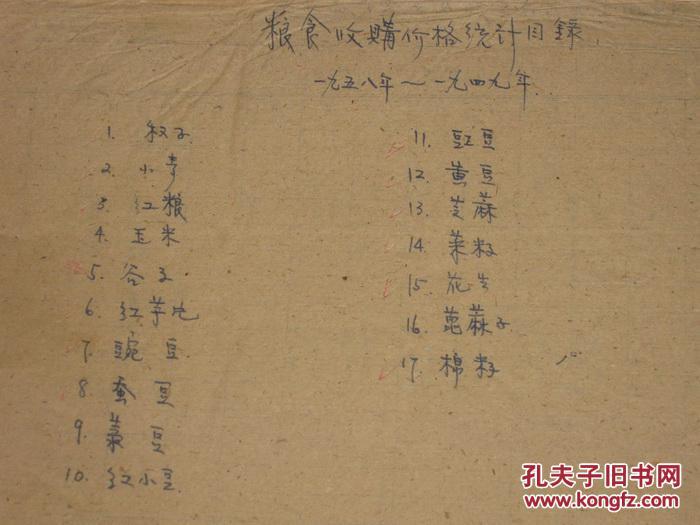 粮食收購价格统计目錄
一九五八年～一九四九年
1. 子
2. 小麦
3. 红粮
4. 玉米
5. 谷子
6. 红芋片
7. 豌豆
8. 蚕豆
9. 菉豆
10. 红小豆
11. 豇豆
12. 黄豆
13. 芝蔴
14. 菜籽
15. 花生
16. 蓖蔴子
17. 棉籽
孔夫子旧书网
www.kongfz.com